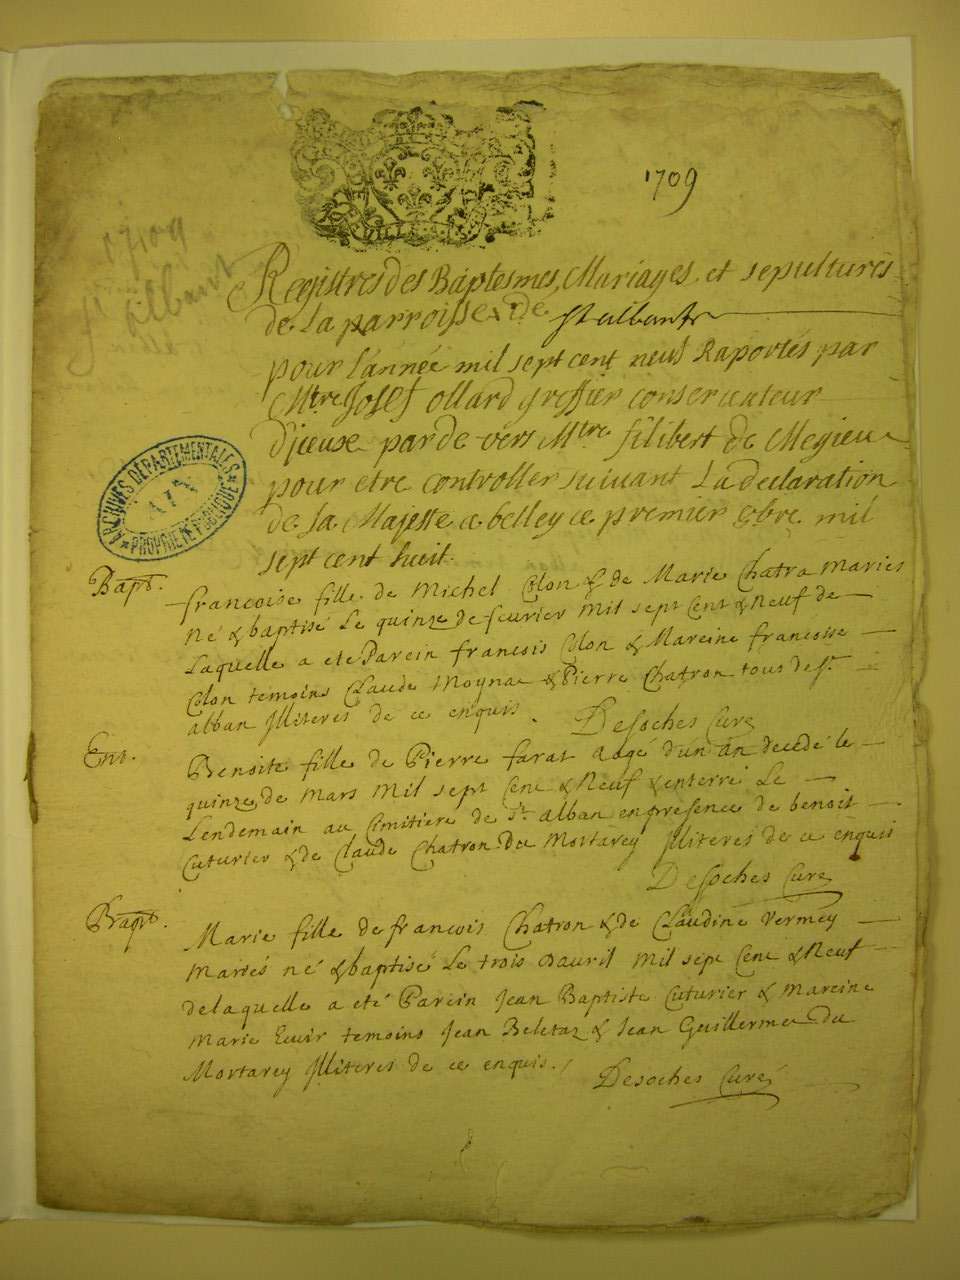 1709
1709
St Alban
Registres des Baptesmes, Mariages, et sepultures
de La parroisse de St albant
pour l'année mil sept cent neuf Raportés par
Mtre Josef ollard greffier conservateur
par de vers Mtre filibert de Megieu
pour etre controller suivant La declaration
de sa Majeste a belley ce premier 8bre mil
sept cent huit.
ARCHIVES DÉPARTEMENTALES
AIN
PROPRIÉTÉ PUBLIQUE
Bapt.
francoise fille de Michel Colon & de Marie Chatra Maries
Né & baptisé Le quinze de feurier Mil sept Cent & Neuf de
Laquelle a eté Parein francois Colon & Mareine francoise
Colon temoins Claude Moyna & Pierre Chatron tous de St
alban Illiteres de ce enquis. Desoches Curé
Ent.
Benoite fille de Pierre farat aagé d'un an decedé le
quinze de Mars Mil sept Cent & Neuf & enterré Le
Lendemain au Cimitiere de St alban en presence de benoit
Cuturier & de Claude Chatron Du Mortarey Illiteres de ce enquis
Desoches Curé
Bapt.
Marie fille de francois Chatron & de Claudine Vermey
Mariés né & baptisé Le trois Dauril Mil sept Cent & Neuf
de laquelle a eté Parein Jean Baptiste Cuturier & Mareine
Marie temoins Jean Beletaz & Jean Guillerme du
Mortarey Illiteres de ce enquis.
Desoches Curé